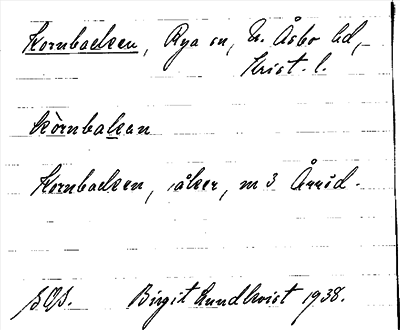 Kornbacken, Rya sn, N. Åsbo hd,
Krist. l.
kòrnbakan
Kornbacken, åker, m 3 Årröd.
S.O.S. Birgit Lundkvist 1938.